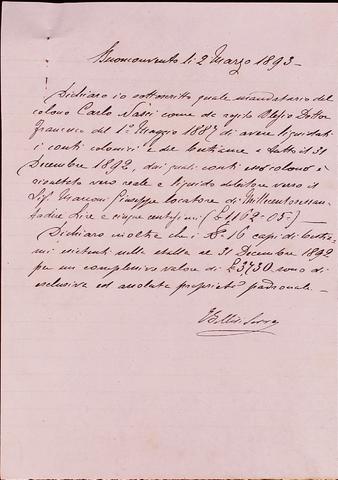 Buonconvento li 2 Marzo 1893 -
Dichiaro io sottoscritto quale mandatario del
colono Carlo Nassi come da rogito Dottor
Francesco del 1º Maggio 1887 di avere liquidati
i conti colonici e del bestiame a tutto il 31
Decembre 1892, dai quali conti esso colono è
risultato vero reale e liquido debitore verso il
Sig. Marconi Giuseppe locatore di Millecentosessan-
tadue Lire e cinque centesimi (£ 1162-05-)
Dichiaro inoltre che i Nº 16 capi di bestia-
mi esistenti nella stalla al 31 Decembre 1892
per un complessivo valore di £ 3730 sono di
esclusiva ed assoluta proprietà padronale. -